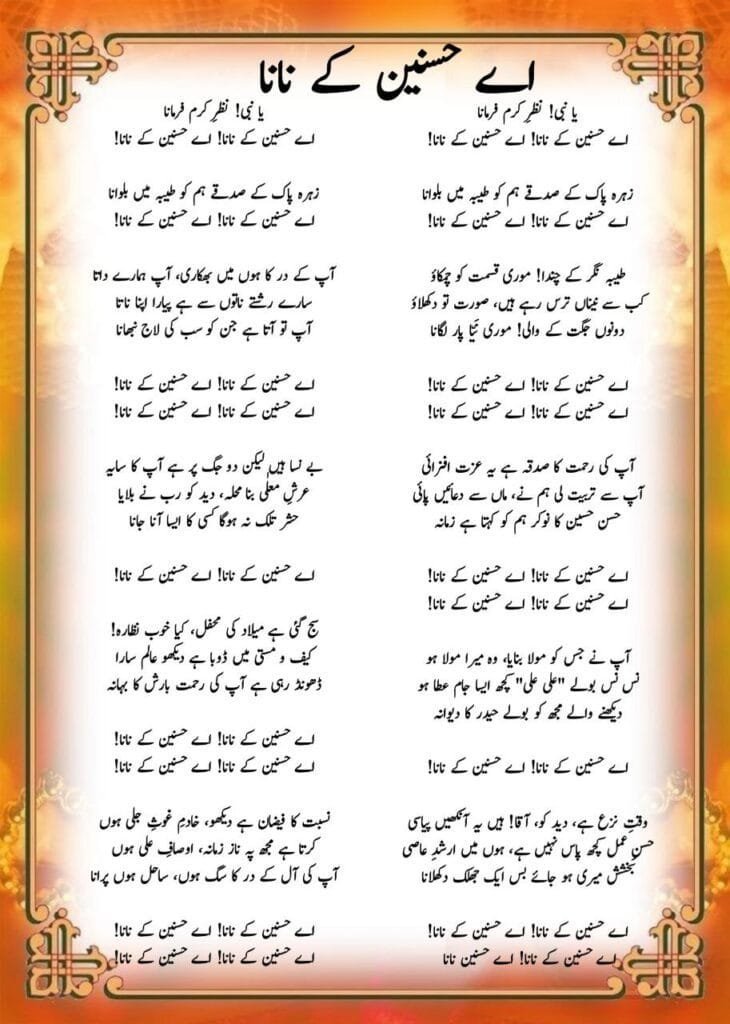 اے حسنین کے نانا
یا نبی! نظرِ کرم فرمانا
اے حسنین کے نانا! اے حسنین کے نانا!
زہرہ پاک کے صدقے ہم کو طیبہ میں بلوانا
اے حسنین کے نانا! اے حسنین کے نانا!
طیبہ نگر کے چندا! موری قسمت کو چمکاؤ
کب سے نیناں ترس رہے ہیں، صورت تو دکھلاؤ
دونوں جگت کے والی! موری نیّا پار لگانا
اے حسنین کے نانا! اے حسنین کے نانا!
اے حسنین کے نانا! اے حسنین کے نانا!
آپ کی رحمت کا صدقہ ہے یہ عزت افزائی
آپ سے تربیت لی ہم نے، ماں سے دعائیں پائی
حسن حسین کا نوکر ہم کو کہتا ہے زمانہ
اے حسنین کے نانا! اے حسنین کے نانا!
اے حسنین کے نانا! اے حسنین کے نانا!
آپ نے جس کو مولا بنایا، وہ میرا مولا ہو
نس نس بولے "علی علی" کچھ ایسا جام عطا ہو
دیکھنے والے مجھ کو بولے حیدر کا دیوانہ
اے حسنین کے نانا! اے حسنین کے نانا!
وقتِ نزع ہے، دید کو، آقا! ہیں یہ آنکھیں پیاسی
حسنِ عمل کچھ پاس نہیں ہے، ہوں میں ارشدِ عاصی
بخشش میری ہو جائے بس ایک جھلک دکھلانا
اے حسنین کے نانا! اے حسنین کے نانا!
اے حسنین کے نانا! اے حسنین نانا
یا نبی! نظرِ کرم فرمانا
اے حسنین کے نانا! اے حسنین کے نانا!
زہرہ پاک کے صدقے ہم کو طیبہ میں بلوانا
اے حسنین کے نانا! اے حسنین کے نانا!
آپ کے در کا ہوں میں بھکاری، آپ ہمارے داتا
سارے رشتے ناتوں سے ہے پیارا اپنا ناتا
آپ تو آتا ہے جن کو سب کی لاج نبھانا
اے حسنین کے نانا! اے حسنین کے نانا!
اے حسنین کے نانا! اے حسنین کے نانا!
بے نسا ہیں لیکن دو جگ پر ہے آپ کا سایہ
عرشِ معلّٰی بنا محلہ، دید کو رب نے بلایا
حشر تلک نہ ہوگا کسی کا ایسا آنا جانا
اے حسنین کے نانا! اے حسنین کے نانا!
سج گئی ہے میلاد کی محفل، کیا خوب نظارہ!
کیف و مستی میں ڈوبا ہے دیکھو عالم سارا
ڈھونڈ رہی ہے آپ کی رحمت بارش کا بہانہ
اے حسنین کے نانا! اے حسنین کے نانا!
اے حسنین کے نانا! اے حسنین کے نانا!
نسبت کا فیضان ہے دیکھو، خادمِ غوثِ جلی ہوں
کرتا ہے مجھ پہ ناز زمانہ، اوصافِ علی ہوں
آپ کی آل کے در کا سگ ہوں، ساحل ہوں پرانا
اے حسنین کے نانا! اے حسنین کے نانا!
اے حسنین کے نانا! اے حسنین کے نانا!